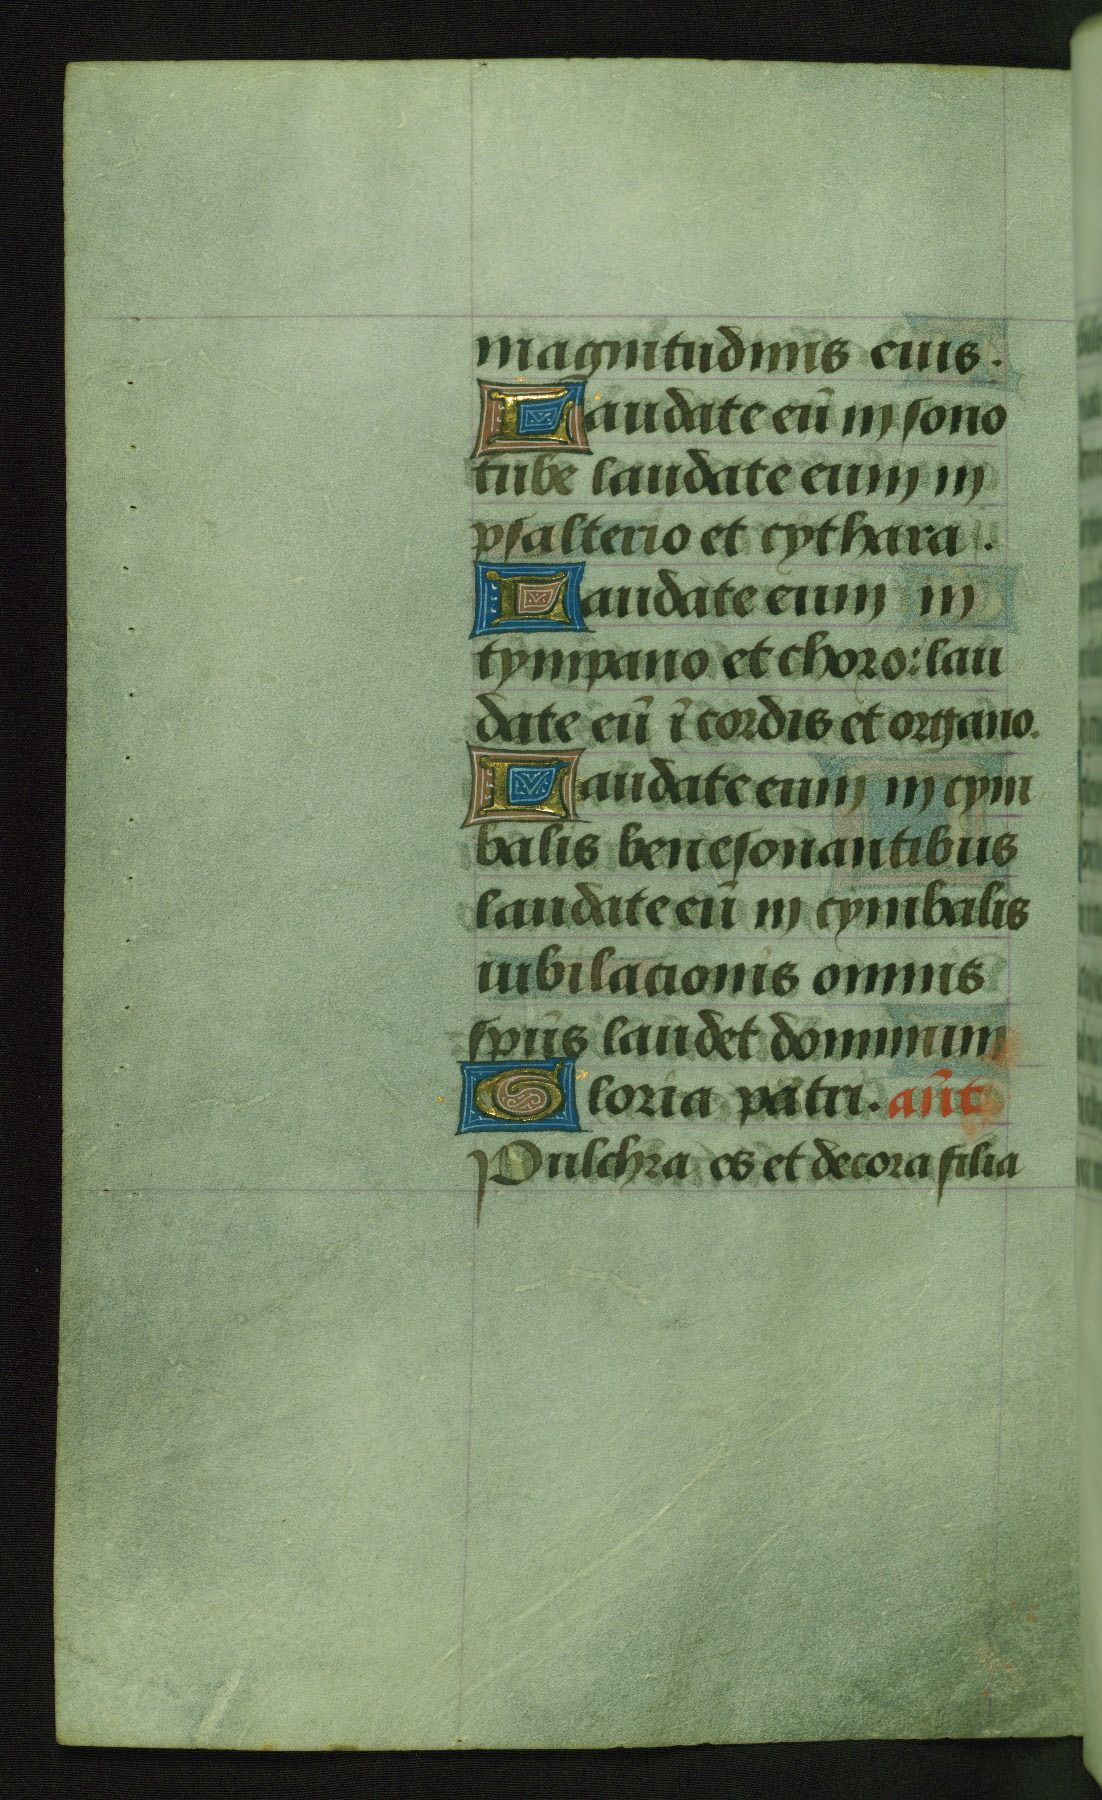 magnitudinis eius.
Laudate eū in sono
tube laudate eum in
psalterio et cythara.
Laudate eum in
tympano et choro: lau
date eū ī cordis et organo.
Laudate eum in cym
balis benesonantibus
laudate eū in cymbalis
iubilacionis omnis
sp̄us laudet dominum
Gloria patri. an̄t
Pulchra es et decora filia